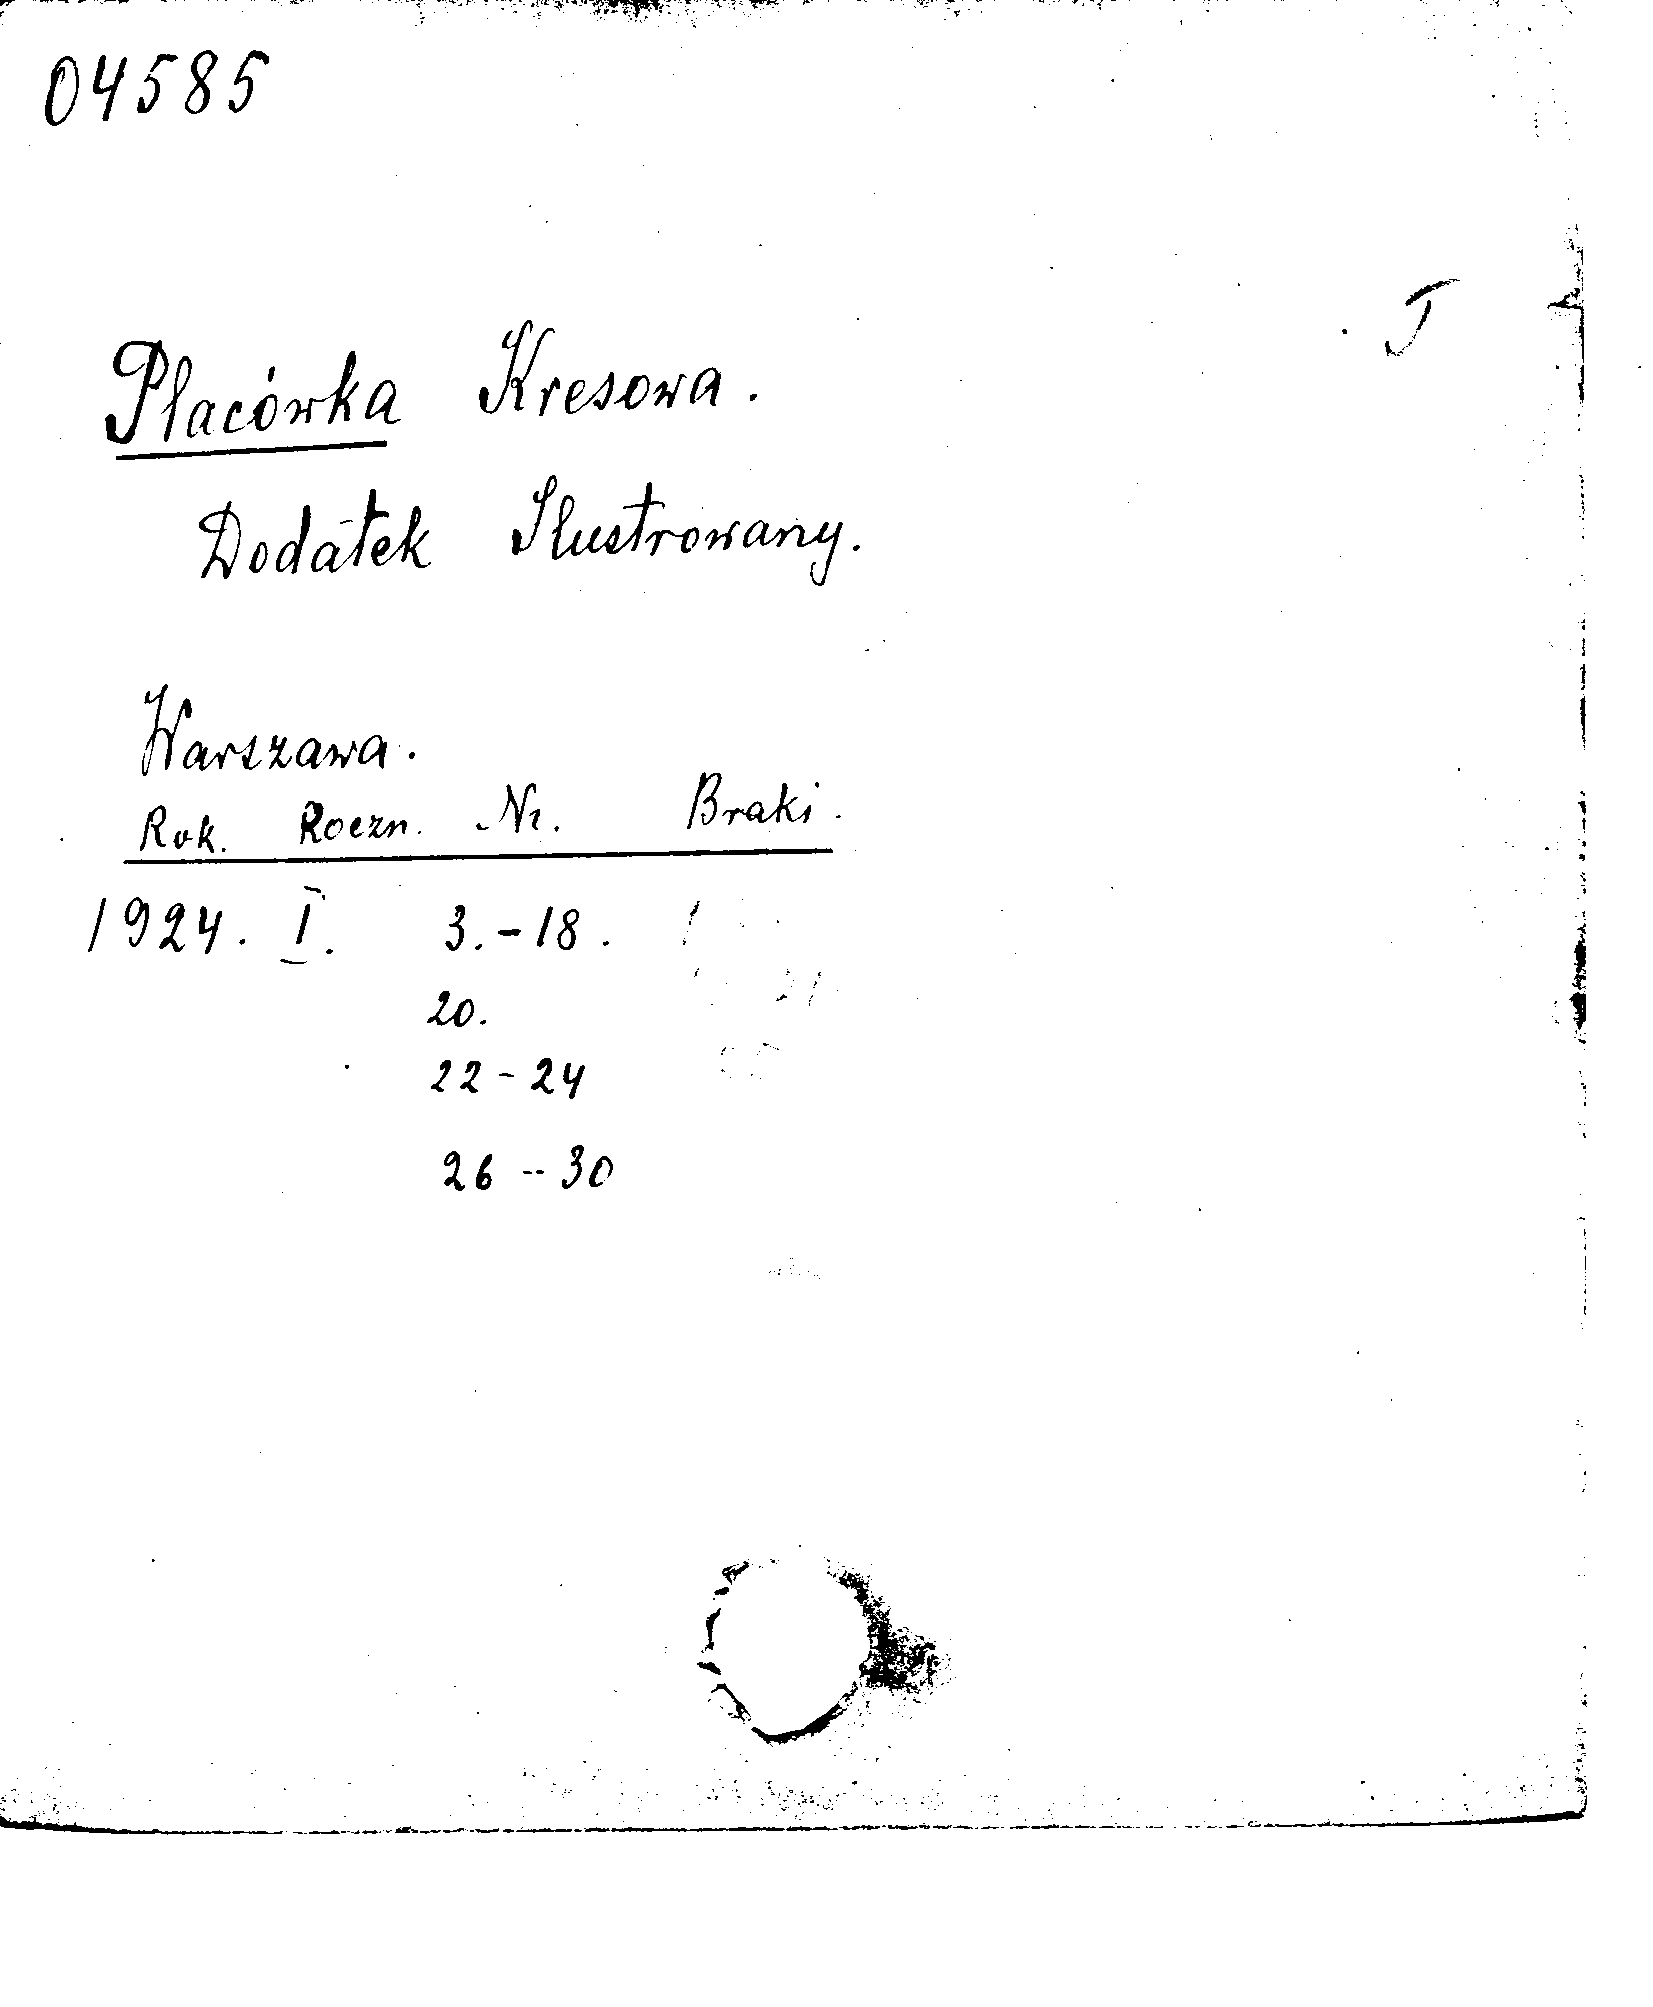 04585
J
Placówka Kresowa.
Dodatek Ilustrowany.
Warszawa.
Rok. Roczn. Nr. Braki.
1924. I. 3.-18.
20.
22-24
26-30